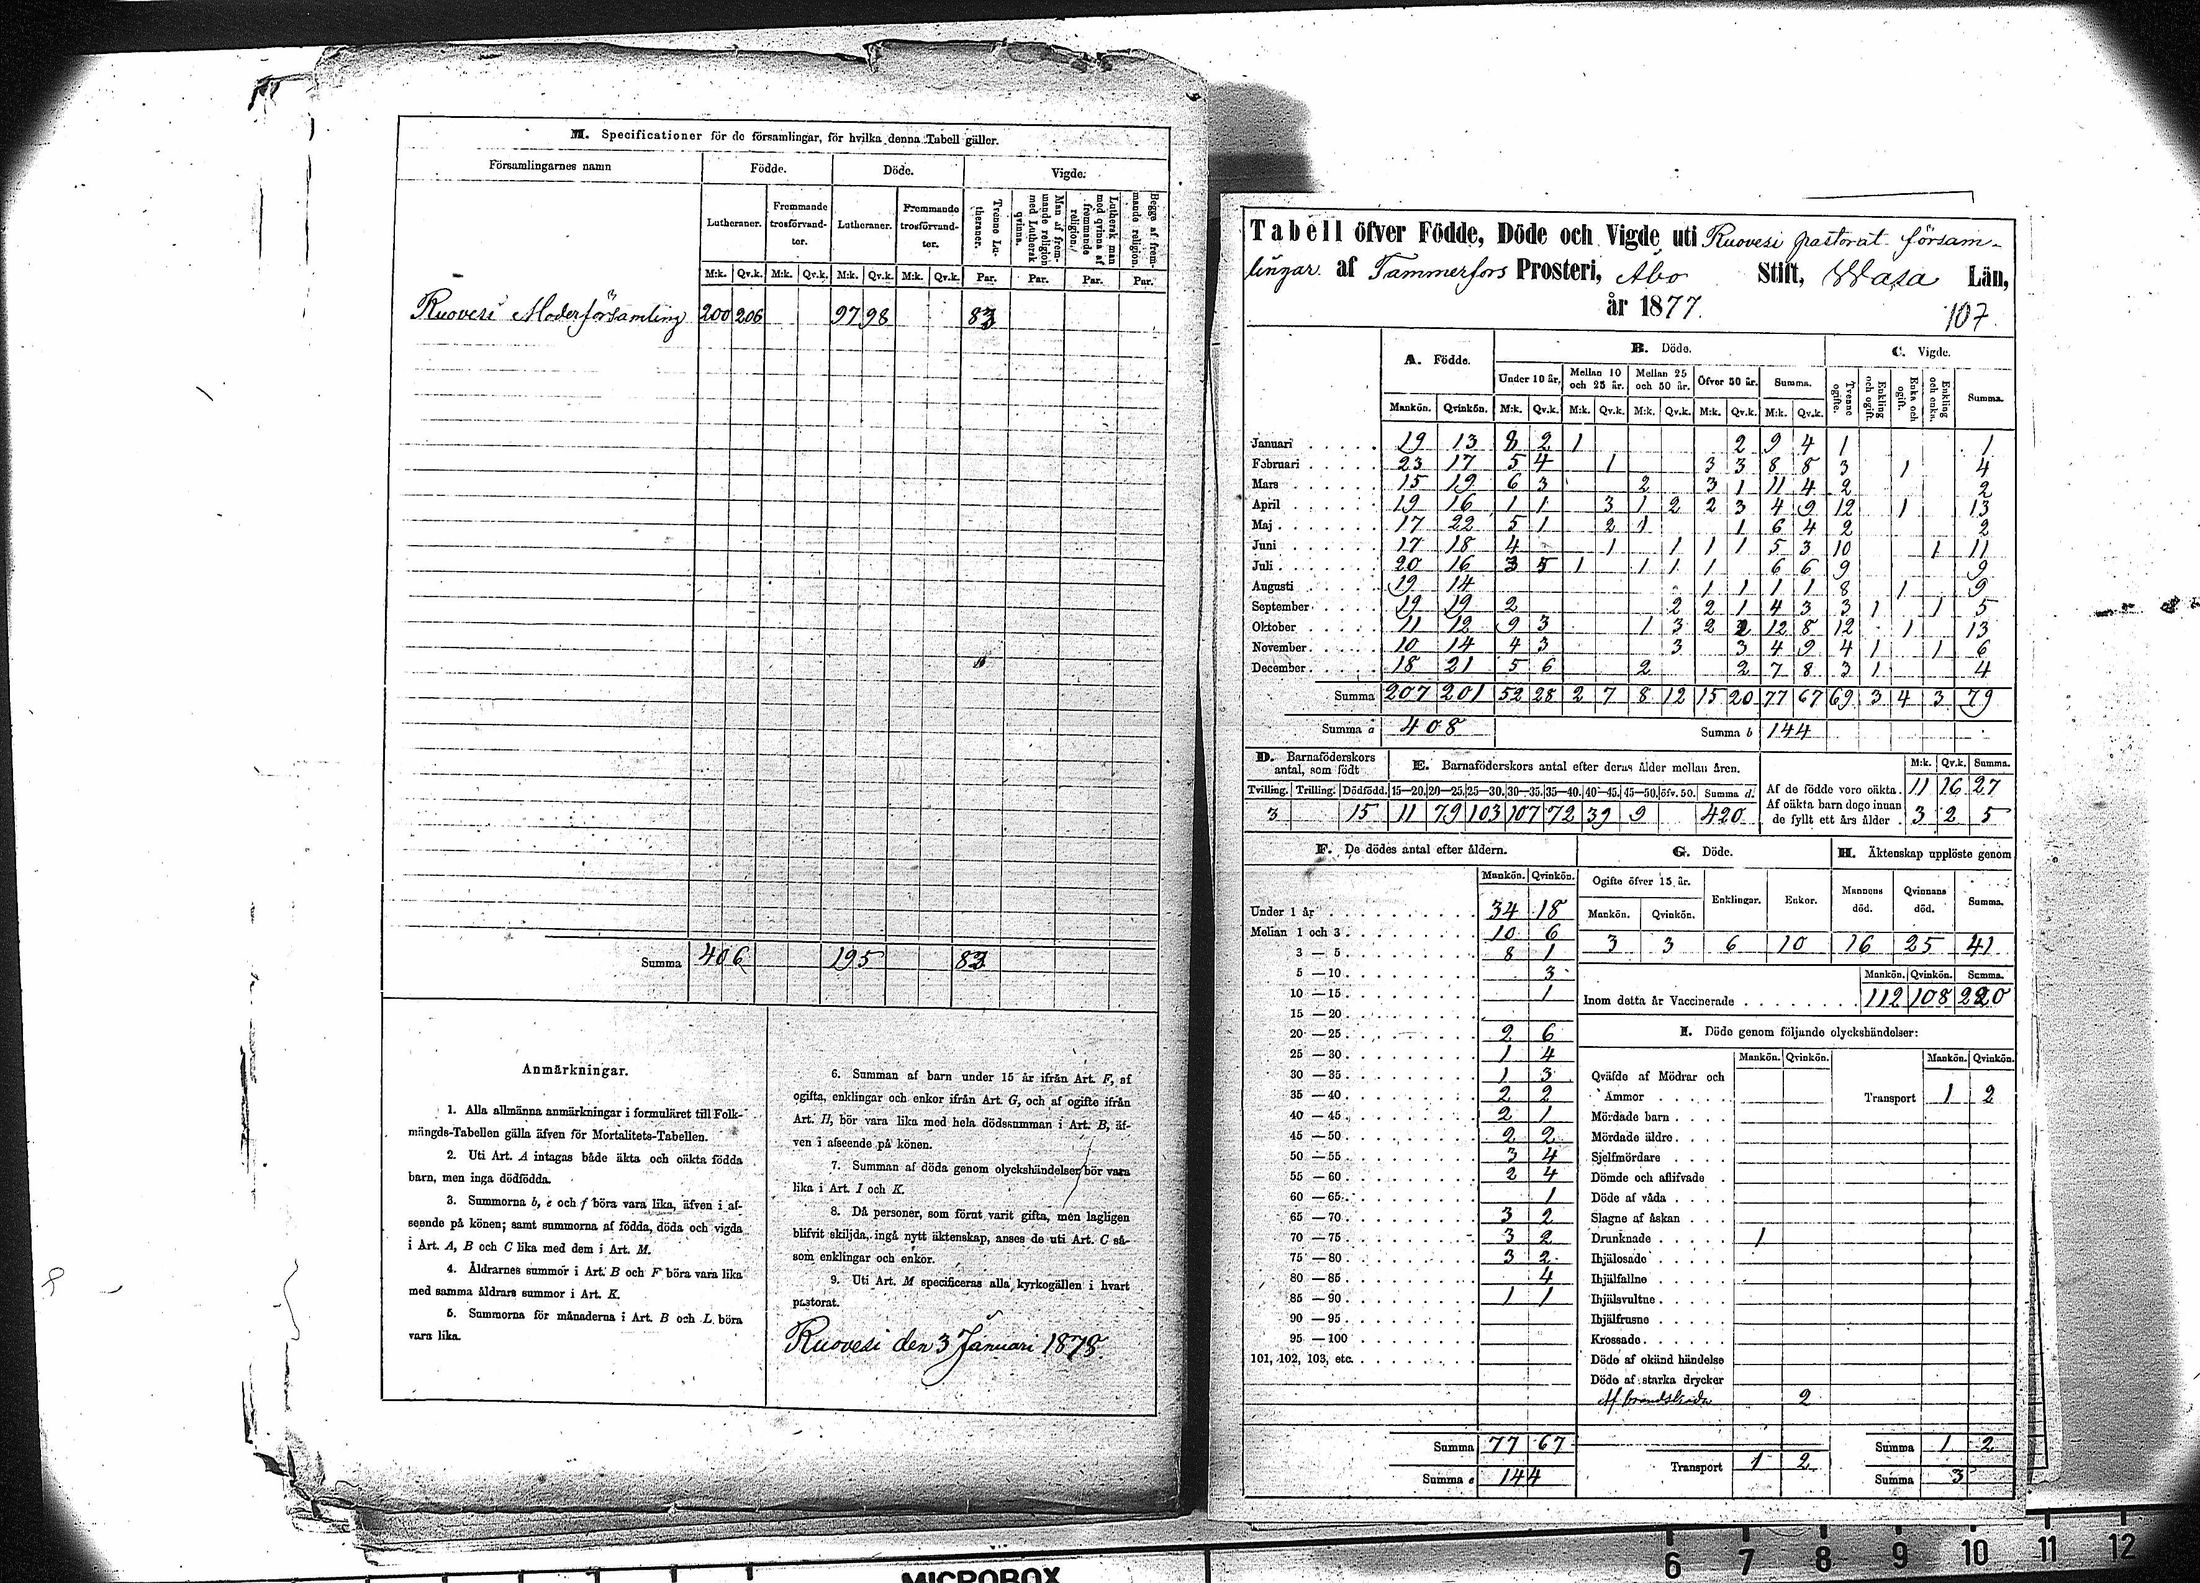 M. Specificationer för de församlingar, för hvilka denna Tabell gäller.
Församlingarnes namn Födde. Döde. Vigde.
Lutheraner. Fremmande trosförvandter. Lutheraner. Fremmande trosförvandter. Tvenne Lutheraner. Man af fremmande religion med Luthersk qvinna. Luthersk man med qvinna af fremmande religion. Begge af fremmande religion.
M:k. Qv.k. M:k. Qv.k. M:k. Qv.k. M:k. Qv.k. Par. Par. Par. Par.
Ruovesi Moderförsamling 200 206 97 98 83
Summa 406 195 83
Anmärkningar.
1. Alla allmänna anmärkningar i formuläret till Folk-
mängds-Tabellen gälla äfven för Mortalitets-Tabellen.
2. Uti Art. A intagas både äkta och oäkta födda
barn, men inga dödfödda.
3. Summorna b, e och f böra vara lika, äfven i af-
seende på könen; samt summorna af födda, döda och vigda
i Art. A, B och C lika med dem i Art. M.
4. Åldrarnes summor i Art. B och F böra vara lika
med samma åldrars summor i Art. K.
5. Summorna för månaderna i Art. B och L böra
vara lika.
6. Summan af barn under 15 år ifrån Art. F, af
ogifta, enklingar och enkor ifrån Art. G, och af ogifte ifrån
Art. H, bör vara lika med hela dödssumman i Art. B, äf-
ven i afseende på könen.
7. Summan af döda genom olyckshändelser bör vara
lika i Art. I och K.
8. Då personer, som förut varit gifta, men lagligen
blifvit skiljda, ingå nytt äktenskap, anses de uti Art. C så-
som enklingar och enkor.
9. Uti Art. M specificeras alla kyrkogällen i hvart
pastorat.
Ruovesi den 3 Januari 1878.
Tabell öfver Födde, Döde och Vigde uti Ruovesi pastorat församlingar
af Tammerfors Prosteri, Åbo Stift, Wasa Län,
år 1877.
107.
A. Födde. B. Döde. C. Vigde.
Under 10 år. Mellan 10 och 25 år. Mellan 25 och 50 år. Öfver 50 år. Summa. Tvenne ogifte. Enkling och ogift. Enka och ogift. Enkling och enka. Summa.
Mankön. Qvinkön. M:k. Qv.k. M:k. Qv.k. M:k. Qv.k. M:k. Qv.k. M:k. Qv.k.
Januari 19 13 8 2 1 2 9 4 1 1
Februari 23 17 5 4 1 3 3 8 8 3 1 4
Mars 15 19 6 3 2 3 1 11 4 2 2
April 19 16 1 1 3 1 2 2 3 4 9 12 1 13
Maj 17 22 5 1 2 1 1 6 4 2 2
Juni 17 18 4 1 1 1 1 5 3 10 1 11
Juli 20 16 3 5 1 1 1 1 6 6 9 9
Augusti 19 14 1 1 1 1 8 1 9
September 19 19 2 2 2 1 4 3 3 1 1 5
Oktober 11 12 9 3 1 3 2 2 12 8 12 1 13
November 10 14 4 3 3 3 4 9 4 1 1 6
December 18 21 5 6 2 2 7 8 3 1 4
Summa 207 201 52 28 2 7 8 12 15 20 77 67 69 3 4 3 79
Summa a 408 Summa b 144
D. Barnaföderskors antal, som födt E. Barnaföderskors antal efter deras ålder mellan åren. M:k. Qv.k. Summa.
Tvilling. Trilling. Dödfödd. 15—20. 20—25. 25—30. 30—35. 35—40. 40—45. 45—50. öfv. 50. Summa d.
3 15 11 79 103 107 72 39 9 420
Af de födde voro oäkta. 11 16 27
Af oäkta barn dogo innan de fyllt ett års ålder 3 2 5
F. De dödes antal efter åldern.
Mankön. Qvinkön.
Under 1 år 34 18
Mellan 1 och 3 10 6
3 — 5 8 1
5 — 10 3
10 — 15 1
15 — 20
20 — 25 2 6
25 — 30 1 4
30 — 35 1 3
35 — 40 2 2
40 — 45 2 1
45 — 50 2 2
50 — 55 3 4
55 — 60 2 4
60 — 65 1
65 — 70 3 2
70 — 75 3 2
75 — 80 3 2
80 — 85 4
85 — 90 1 1
90 — 95
95 — 100
101, 102, 103, etc.
Summa 77 67
Summa e 144
G. Döde.
Ogifte öfver 15 år. Enklingar. Enkor.
Mankön. Qvinkön.
3 3 6 10
H. Äktenskap upplöste genom
Mannens död. Qvinnans död. Summa.
16 25 41
Mankön. Qvinkön. Summa.
Inom detta år Vaccinerade 112 108 220
I. Döde genom följande olyckshändelser:
Mankön. Qvinkön. Mankön. Qvinkön.
Qväfde af Mödrar och Ammor
Transport 1 2
Mördade barn
Mördade äldre
Sjelfmördare
Dömde och aflifvade
Döde af våda
Slagne af åskan
Drunknade 1
Ihjälosade
Ihjälfallne
Ihjälsvultne
Ihjälfrusne
Krossade
Döde af okänd händelse
Döde af starka drycker
Af brandskada 2
Transport 1 2
Summa 1 2
Summa 3
6 7 8 9 10 11 12
MICROBOX